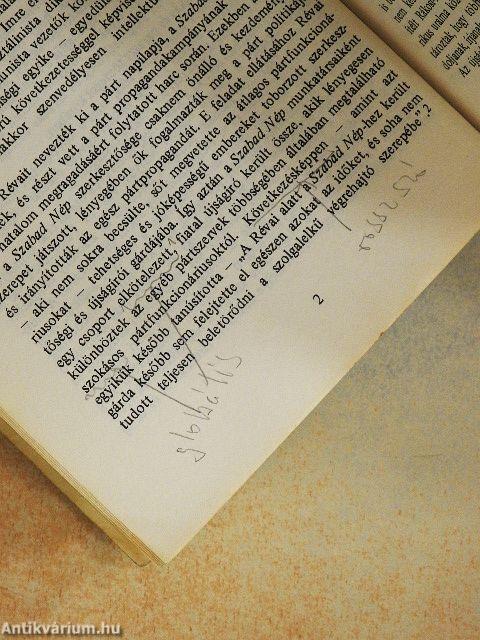 Imre er
sztálinista dik
inista vezetők köz
nségi egyike – egyedül
rú következetességgel képvis
akkor szenvedélyesen intellektu
Révait nevezték ki a párt napilapja, a Szabad
ek, és részt vett a párt propagandakampányának
hatalom megragadásáért folytatott harc során. Ezekben
a Szabad Nép szerkesztősége csaknem önálló és kezdemé
zerepet játszott, lényegében ők fogalmazták meg a párt politikáj
és irányították az egész pártpropagandát. E feladat ellátásához Révai
– aki nem sokra becsülte, sőt megvetette az átlagos pártfunkcioná-
riusokat – tehetséges és jóképességű embereket toborzott szerkesz-
tőségi és újságírói gárdájába. Így aztán a Szabad Nép munkatársaiként
egy csoport elkötelezett, fiatal újságíró került össze, akik lényegesen
különböztek az egyéb pártszervek többségében általában megtalálható
szokásos pártfunkcionáriusoktól. Következésképpen – amint azt
egyikük később tanúsította – „A Révai alatt a Szabad Nép hez került
gárda később sem felejtette el egészen azokat az időket, és soha nem
tudott teljesen beletörődni a szolgalelkű végrehajtó szerepébe”.2
2
Antikvárium.hu